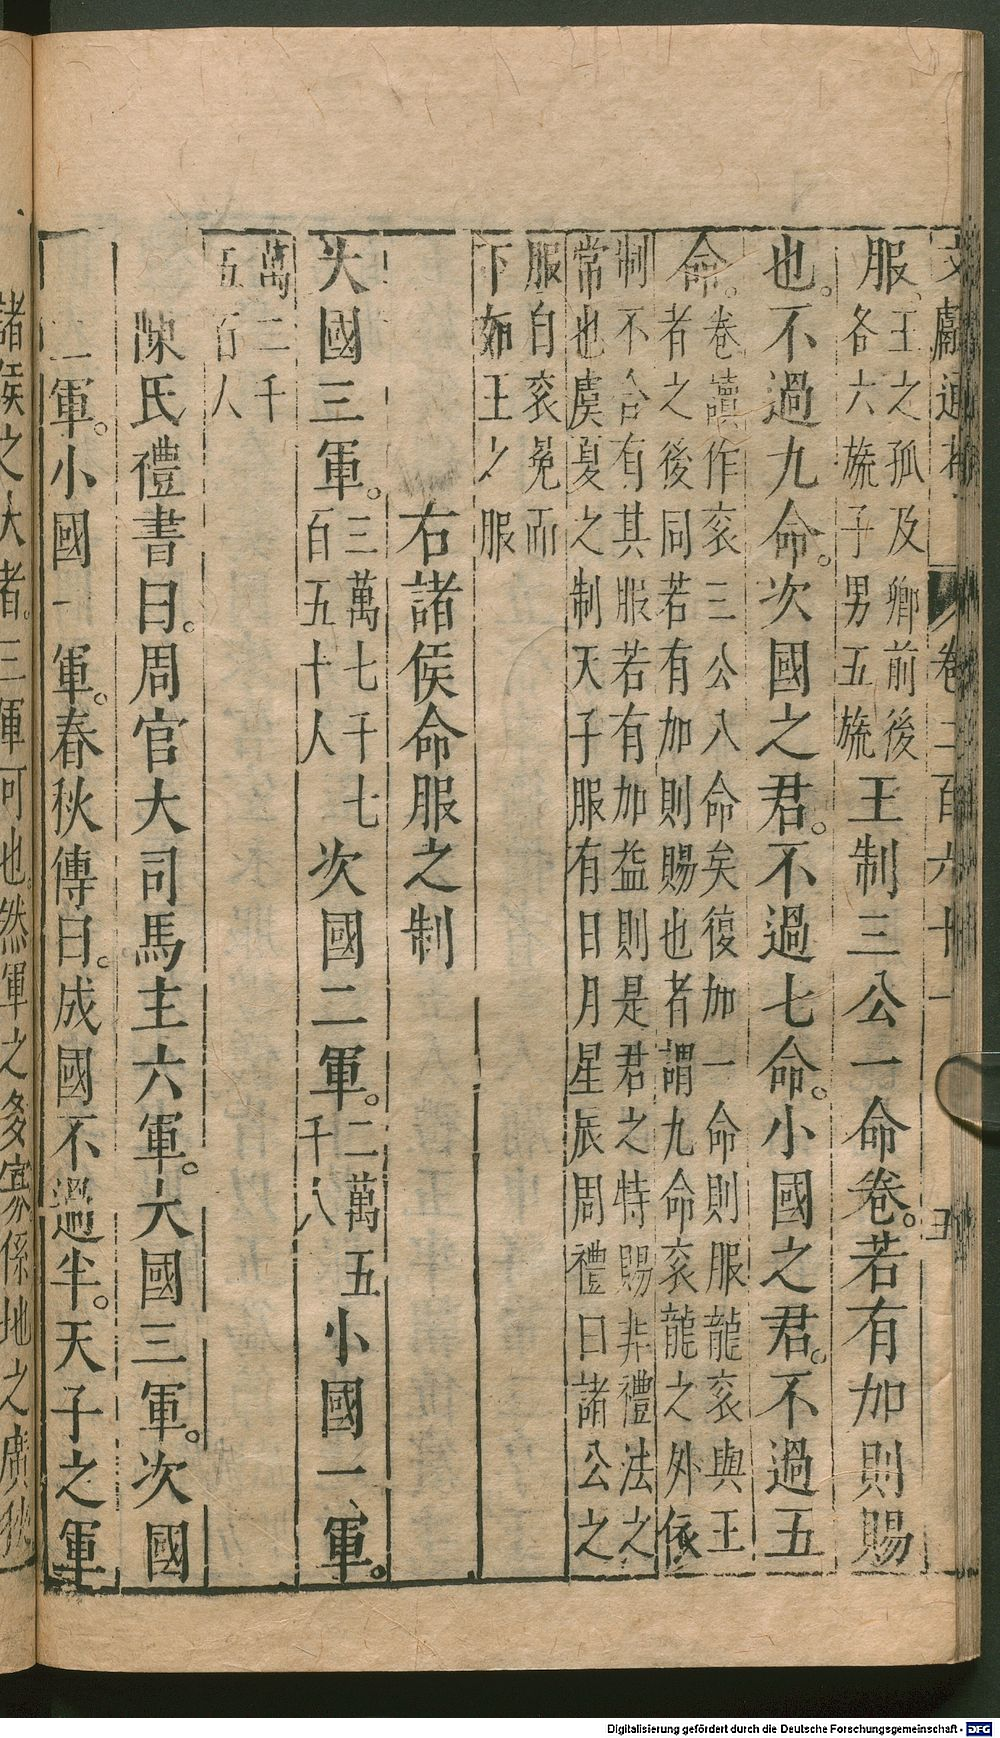 文獻通考 卷二百六十一 五
服王之孤及卿前後各六旒子男五旒王制三公一命卷若有加則賜
也不過九命次國之君不過七命小國之君不過五
命卷讀作衮三公八命矣復加一命則服龍衮與王者之後同若有加則賜也者謂九命衮龍之外依
制不合有其服若有加益則是君之特賜非禮法之常也虞夏之制天子服有日月星辰周禮曰諸公之
服自衮冕而下如王之服
右諸侯命服之制
大國三軍三萬七千七百五十人次國二軍二萬五千八小國一軍
萬二千五百人
陳氏禮書曰周官大司馬主六軍大國三軍次國
二軍小國一軍春秋傳曰成國不過半天子之軍
諸侯之大者三軍可也然軍之多寡係地之廣狹
Digitalisierung gefördert durch die Deutsche Forschungsgemeinschaft - DFG